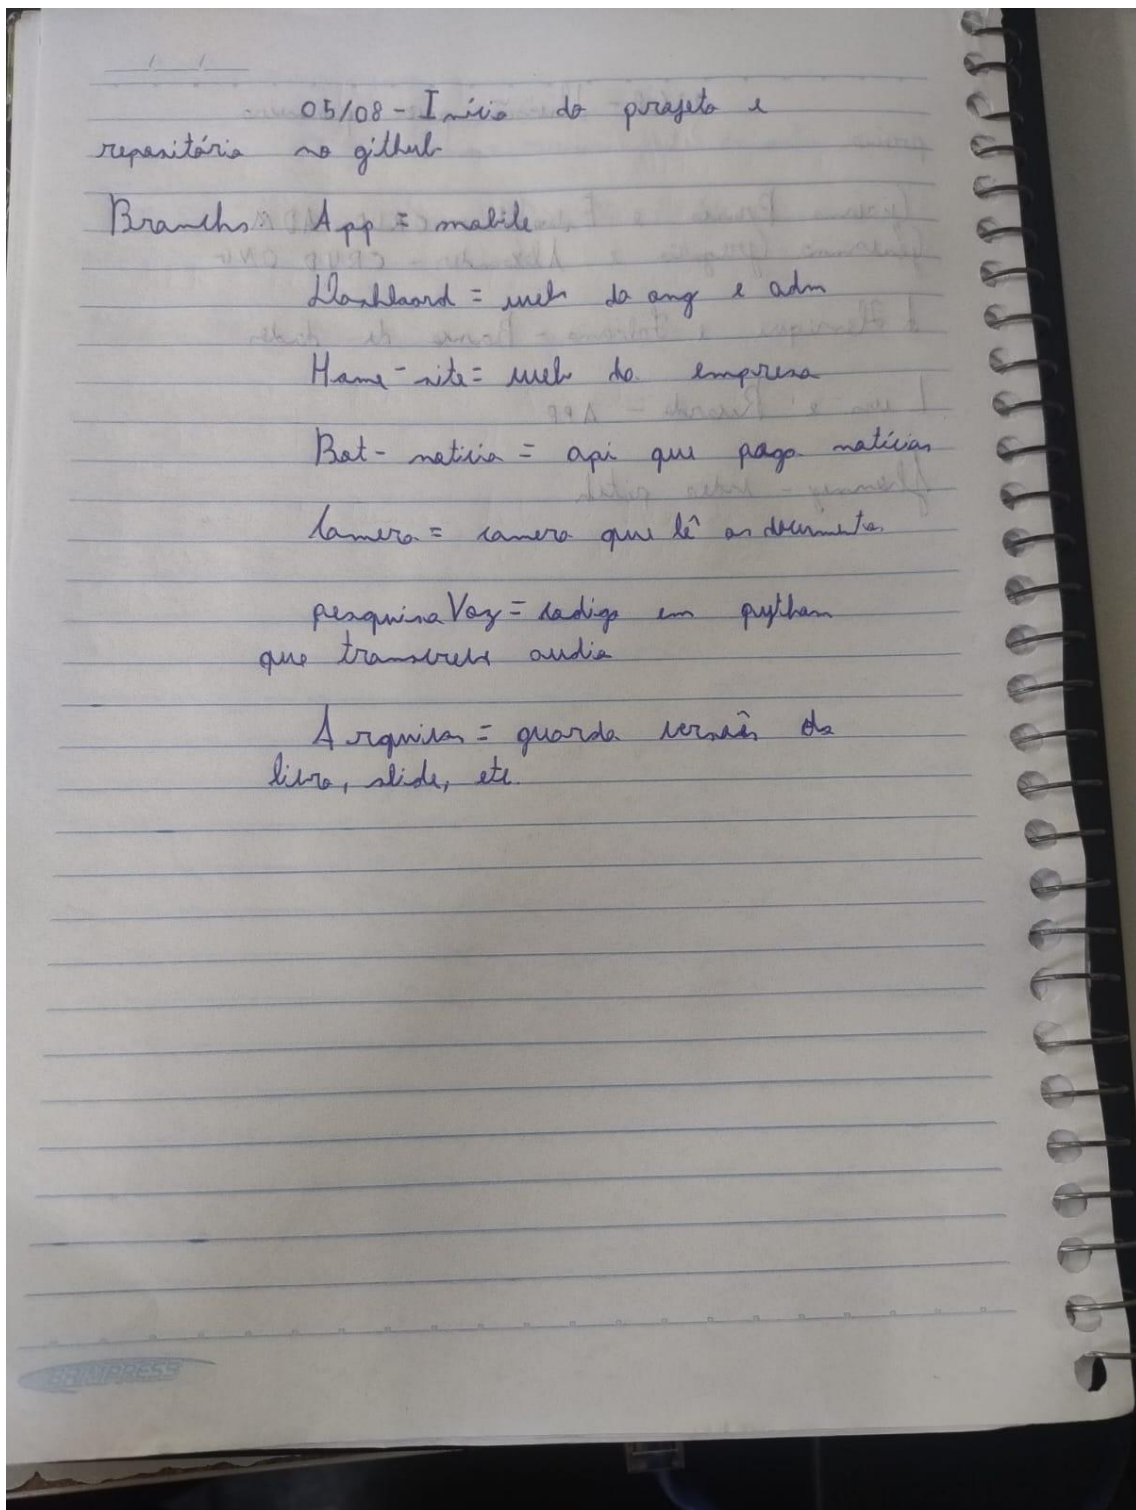 05/08 - Início do projeto e
repositório no github
Branchs: App = mobile
Dashboard = web da ong e adm
Home-site = web da empresa
Bot-noticia = api que pega notícias
Camera = camera que lê os documentos
pesquisaVoz = codigo em python
que transcreve audio
Arquivos = guarda versões do
livro, slide, etc.